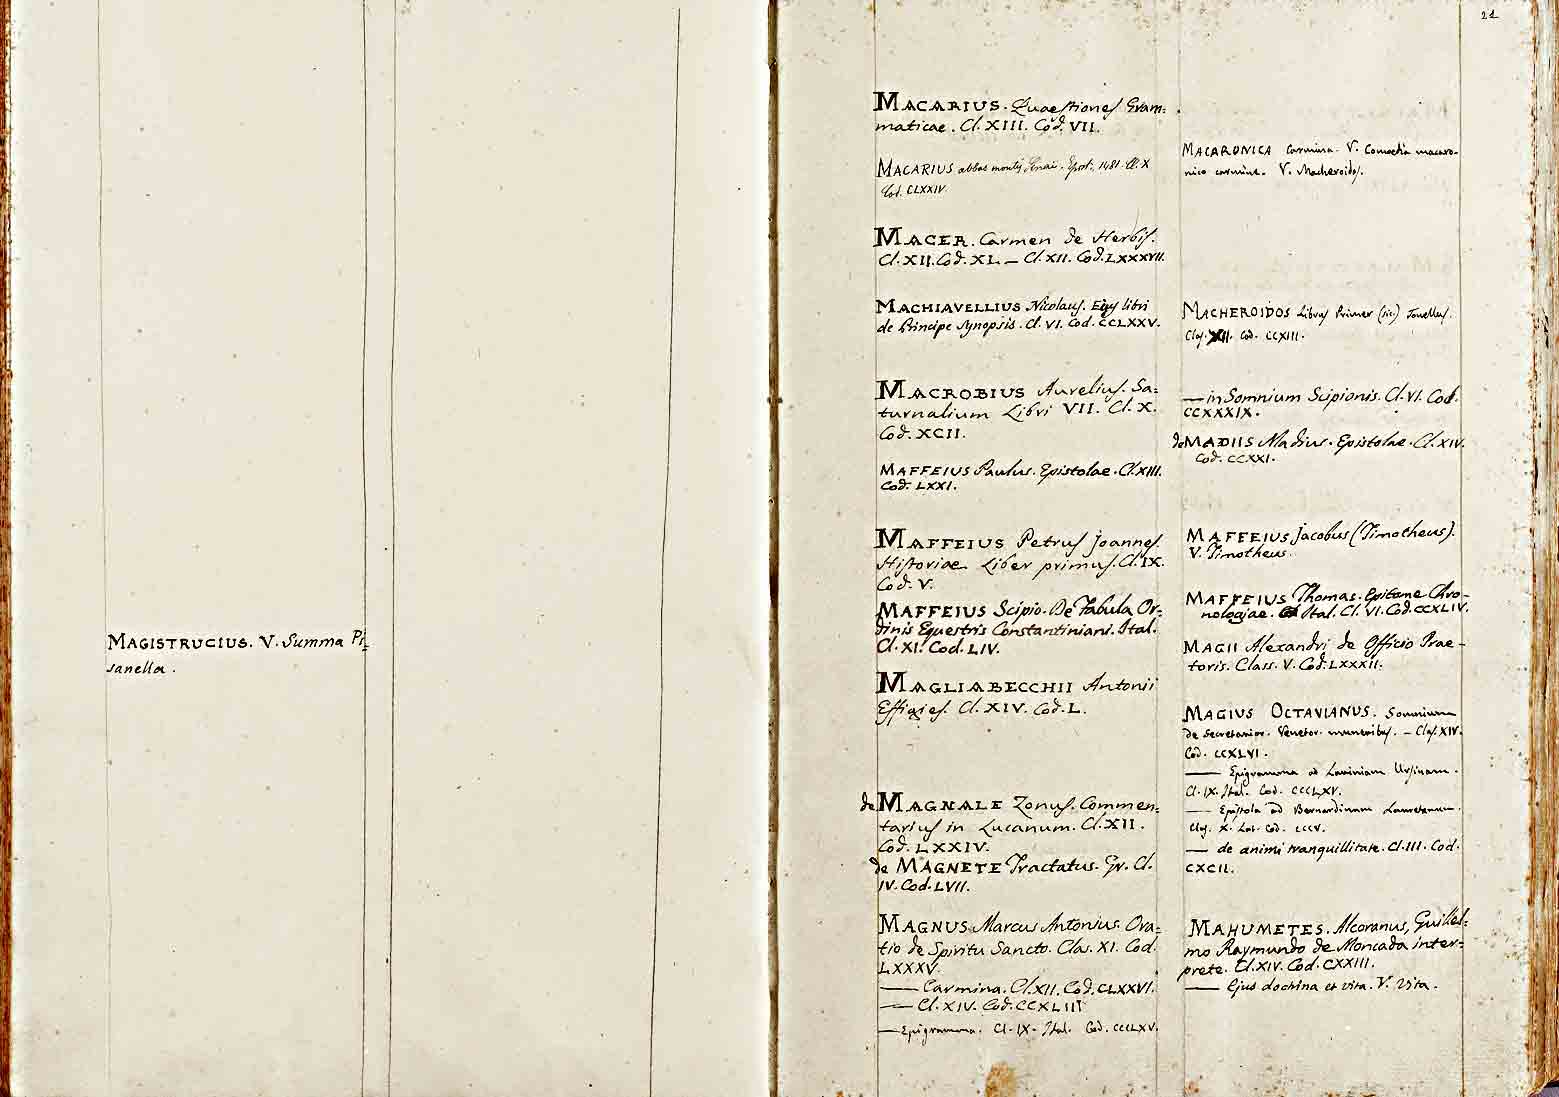 MAGISTRUCIUS. V. Summa Pi=
sanella.
21
MACARIUS. Quaestiones Gram=
maticae. Cl. XIII. Cod. VII.
MACARIUS abbas montis Sinai. Epist. 1481. Cl. X
Cod. CLXXIV.
MACER. Carmen de Herbis.
Cl. XII. Cod. XL — Cl. XII. Cod. LXXXVII.
MACHIAVELLIUS Nicolaus. Ejus libri
de Principe synopsis. Cl. VI. Cod. CCLXXV.
MACROBIUS Aurelius. Sa=
turnalium Libri VII. Cl. X.
Cod. XCII.
MAFFEIUS Paulus. Epistolae. Cl. XIII.
Cod. LXXI.
MAFFEIUS Petrus Joannes
Historiae Liber primus. Cl. IX.
Cod. V.
MAFFEIUS Scipio. De Fabula Or=
dinis Equestris Constantiniani. Ital.
Cl. XI. Cod. LIV.
MAGLIABECCHII Antonii
Effigies. Cl. XIV. Cod. L.
de MAGNALE Zonus. Commen=
tarius in Lucanum. Cl. XII.
Cod. LXXIV.
de MAGNETE Tractatus. Gr. Cl.
IV. Cod. LVII.
MAGNUS Marcus Antonius. Ora=
tio de Spiritu Sancto. Clas. XI. Cod.
LXXXV.
— Carmina. Cl. XII. Cod. CLXXVI.
— Cl. XIV. Cod. CCXLIII
— Epigramma. Cl. IX. Ital. Cod. CCCLXV.
MACARONICA carmina. V. Comoedia macaro-
nico carmine. V. Macheroidos.
MACHEROIDOS Libus Primer (sic)
Clas. XII. Cod. CCXIII.
— in Somnium Scipionis. Cl. VI. Cod.
CCXXXIX.
de MADIIS Madius. Epistolae. Cl. XIV.
Cod. CCXXI.
MAFFEIUS Jacobus (Timotheus).
V. Timotheus.
MAFFEIUS Thomas. Epitome Chro-
nologiae. Ital. Cl. VI. Cod. CCXLIV.
MAGII Alexandri de Officio Prae-
toris. Class. V. Cod. LXXXII.
MAGIUS OCTAVIANUS. Somnium
de secretarior. Venetor. muneribus. — Clas. XIV.
Cod. CCXLVI.
— Epigramma ad Laviniam Ursinam.
Cl. IX. Ital. Cod. CCCLXV.
— Epistola ad Bernardinum Lauretanum.
Clas. X. Lat. Cod. CCCV.
— de animi tranquillitate. Cl. III. Cod.
CXCII.
MAHUMETES. Alcoranus, Guillel=
mo Raymundo de Moncada inter=
prete. Cl. XIV. Cod. CXXIII.
— Ejus doctrina et vita. V. Vita.